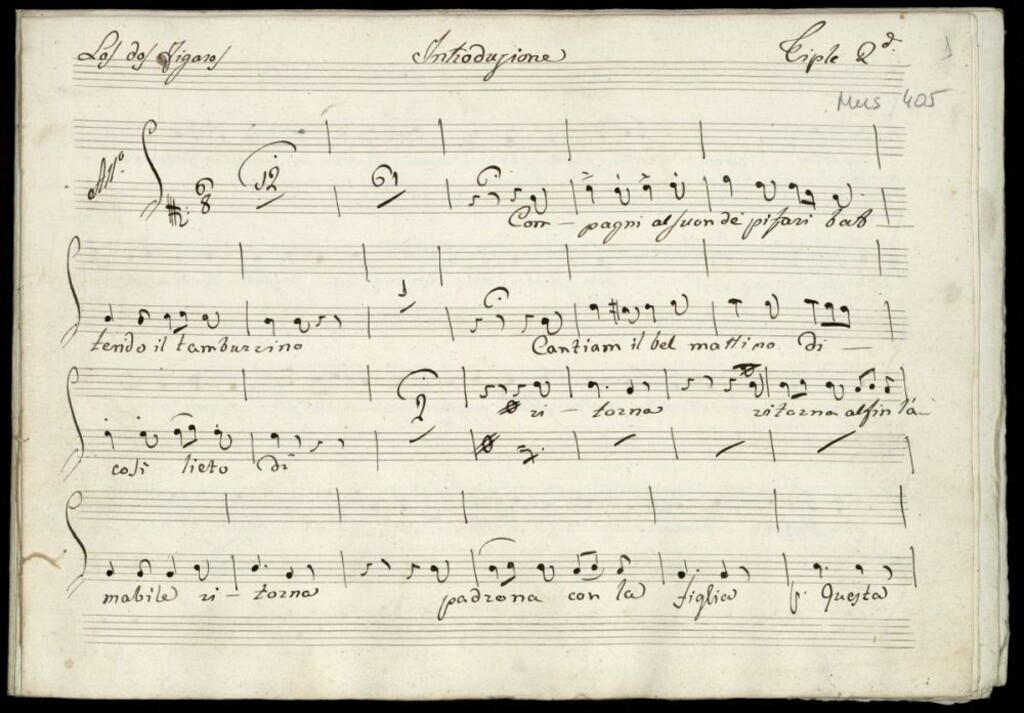 Los dos Figaros Introduzione Tiple 2d.
1
Mus 405
All.o
6 8 12 61
Com - pagni al suon de pifari bat
1
tendo il tamburrino Cantiam il bel mattino di
2
ri - torna ritorna alfin l'a
cosi lieto di
mabile ri - torna padrona con la figlia p. Questa